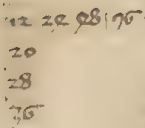 12 20 28 | 36
20
28
36